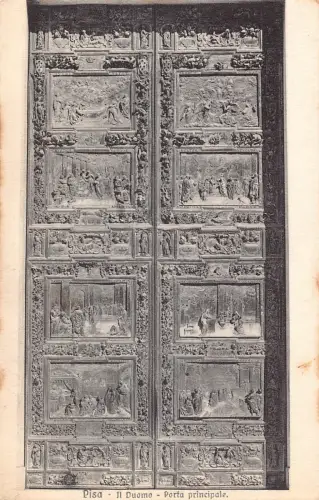 Pisa - Il Duomo - Porta principale.